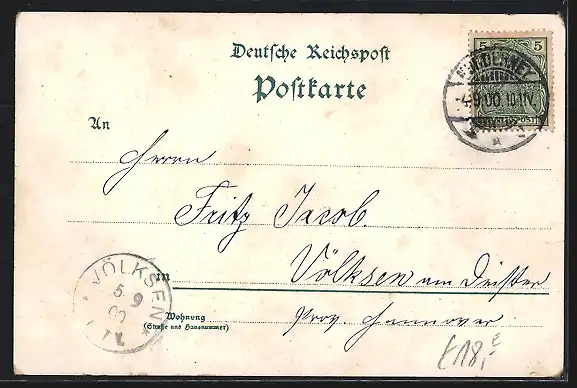 Deutsche Reichspost
Postkarte
5 5
NORDERNEY
-4.9.00.10-11V.
REICHSPOST
An
Herrn
Fritz Jacob.
in Völksen am Deister
Wohnung
(Straße und Hausnummer)
Prov. Hannover
VÖLKSEN
5 9
00
€18,-